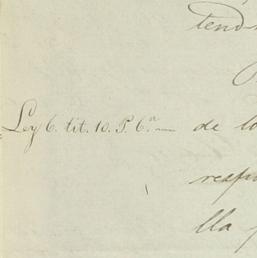 tend
Ley 6. tit. 10. P. 6.ª — de lo
respo
lla